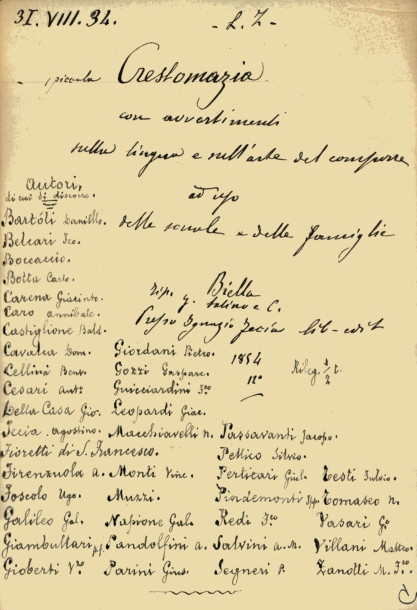 31. VIII. 34. - L. Z -
piccola Crestomazia
con avvertimenti
sulla lingua e sull'arte del comporre
ad uso
delle scuole e delle famiglie
Biella
tip. g. Amosso e C.
Presso Ignazio Feccia lib-edit
1854
12°
Rileg. ½ t.
Autori,
di cui si discorre.
Bartóli Daniello.
Belcari Feo.
Boccaccio.
Botta Carlo.
Carena Giacinto.
Caro annibale.
Castiglione Bald.
Cavalca Dom. Giordani Pietro.
Cellini Benv. Gozzi Gaspare.
Cesari Ant: Guicciardini F.co
Della Casa Gio. Leopardi Giac.
Feccia, agostino. Macchiavelli n. Passavanti Jacopo.
Fioretti di S. Francesco. Pellico Silvio.
Firenzuola a. Monti Vinc. Perticari Giul. Testi Fulvio.
Foscolo Ugo. Muzzi. Pindemonti Ipp. Tomaseo N.
Galileo Gal. Napione Gal. Redi F.co Vasari G.
Giambullari p.f. Pandolfini a. Salvini a. M. Villani Matteo.
Gioberti V.zo Parini Gius. Segneri P. Zanotti M. F.co.